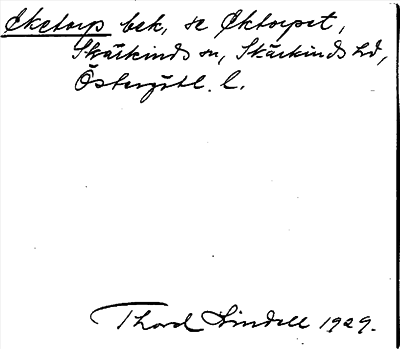 Eketorp bek, se Ektorpet,
Skärkinds sn, Skärkinds hd,
Östergötl. l.
Thord Lindell 1929.